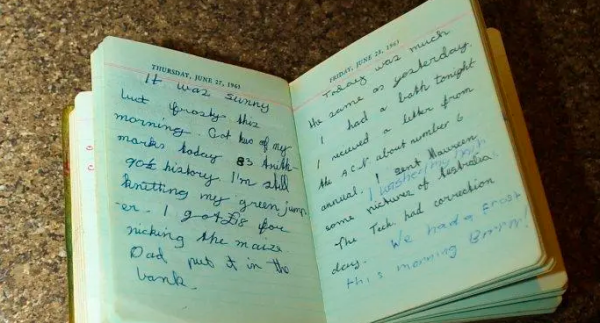 THURSDAY, JUNE 27, 1963
It was sunny
but frosty this
morning. Got two of my
marks today 83 Arith-
90£ history I'm still
knitting my green jump
-er. I got £18 for
picking the maize
Dad put it in the
bank.
FRIDAY, JUNE 28, 1963
Today was much
the same as yesterday.
I had a bath tonight
I recieved a letter from
the A.C.N about number 6
annual. I sent Maureen
I washed my hair
some pictures of Australia
The Tech had correction
day. We had a frost
this morning Brrrr!